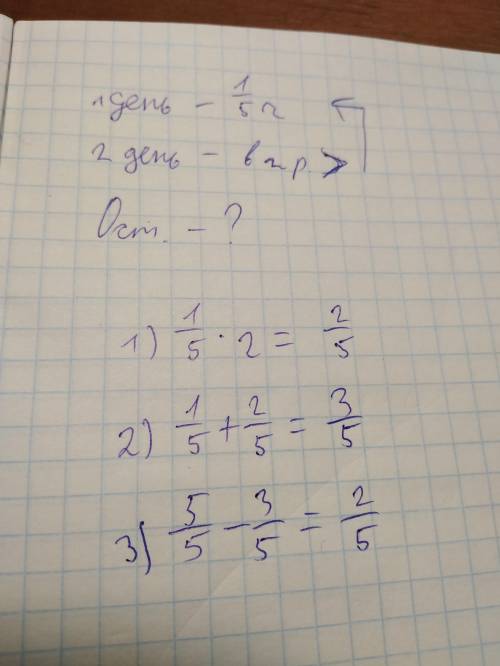 1 день – 1/5 г
2 день – в 2 р. >
Ост. – ?
1) 1/5 · 2 = 2/5
2) 1/5 + 2/5 = 3/5
3) 5/5 – 3/5 = 2/5